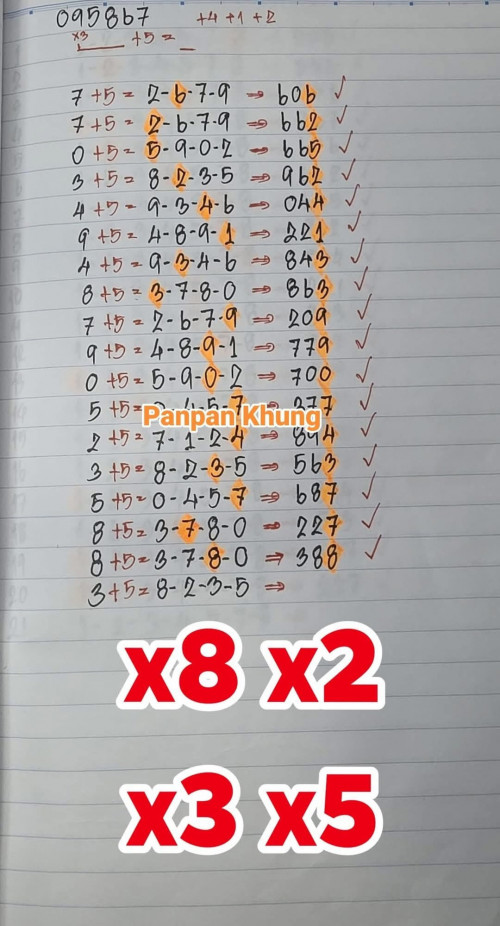 095867 +4 +1 +2
x3 ____ +5 = _
7 +5 = 2-6-7-9 ⇒ 606 ✓
7 +5 = 2-6-7-9 ⇒ 662 ✓
0 +5 = 5-9-0-2 ⇒ 665 ✓
3 +5 = 8-2-3-5 ⇒ 962 ✓
4 +5 = 9-3-4-6 ⇒ 044 ✓
9 +5 = 4-8-9-1 ⇒ 221 ✓
4 +5 = 9-3-4-6 ⇒ 843 ✓
8 +5 = 3-7-8-0 ⇒ 863 ✓
7 +5 = 2-6-7-9 ⇒ 209 ✓
9 +5 = 4-8-9-1 ⇒ 779 ✓
0 +5 = 5-9-0-2 ⇒ 700 ✓
5 +5 = 4-5-7 ⇒ 277 ✓
Panpan Khung
2 +5 = 7-1-2-4 ⇒ 894 ✓
3 +5 = 8-2-3-5 ⇒ 563 ✓
5 +5 = 0-4-5-7 ⇒ 687 ✓
8 +5 = 3-7-8-0 ⇒ 227 ✓
8 +5 = 3-7-8-0 ⇒ 388 ✓
3 +5 = 8-2-3-5 ⇒
x8 x2
x3 x5